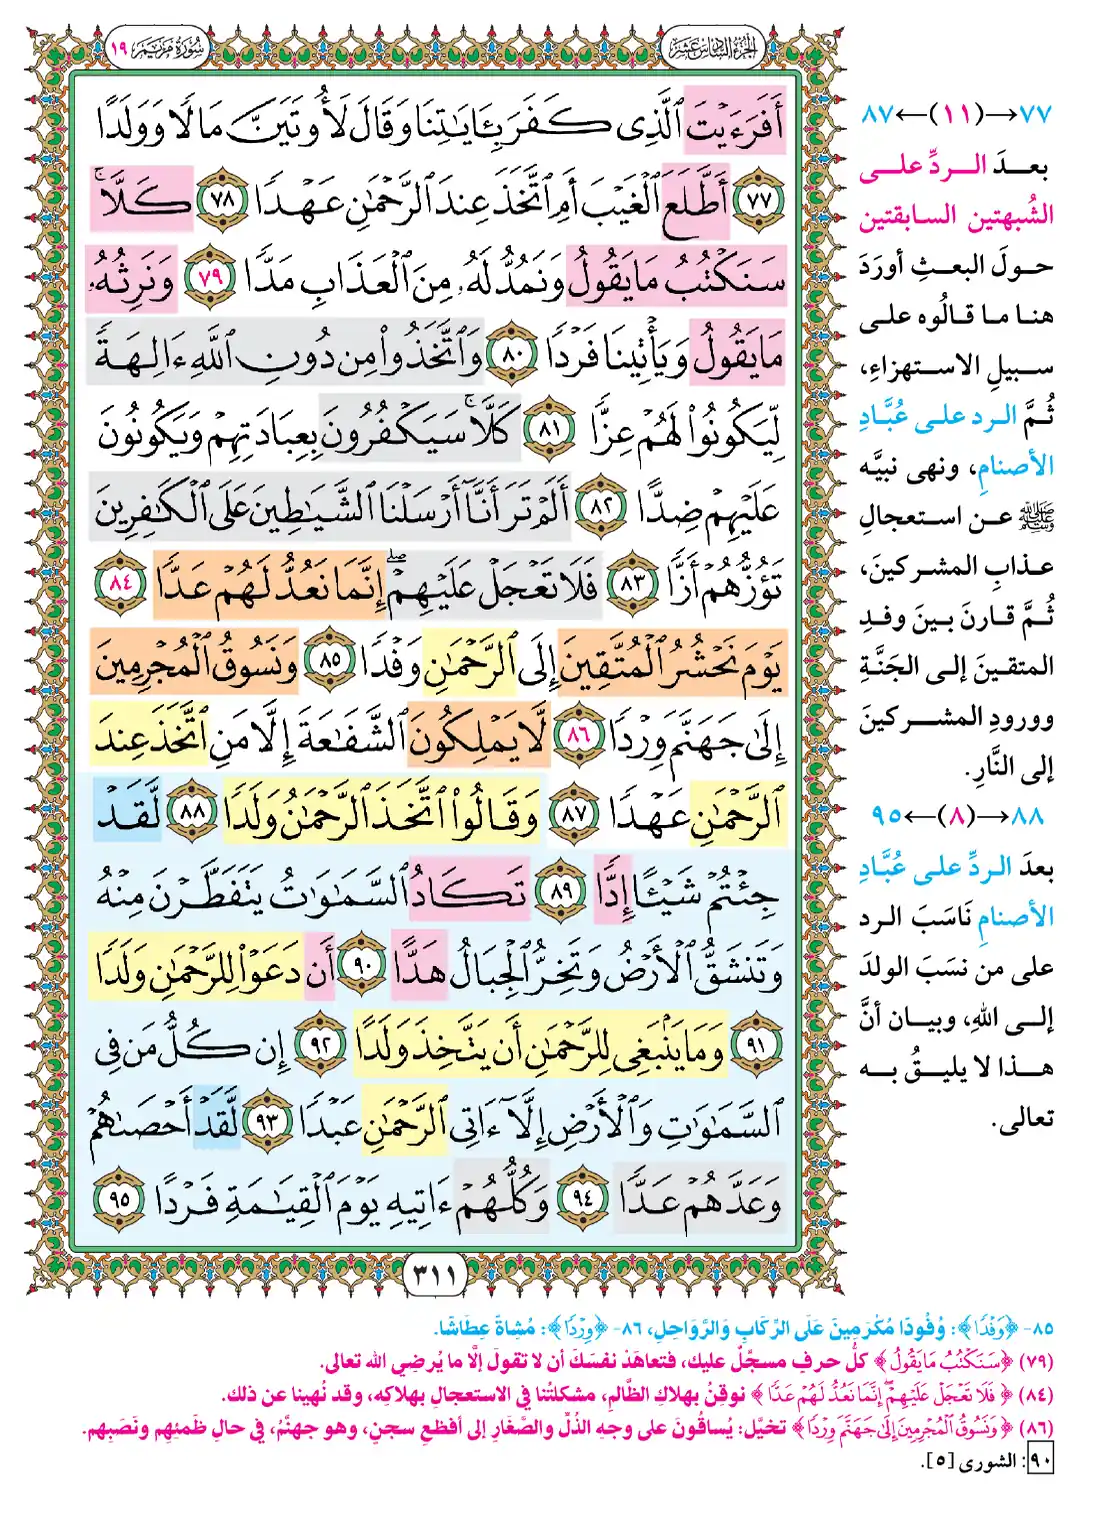 الجزء السادس عشر
سورة مريم ١٩
أَفَرَءَيْتَ ٱلَّذِى كَفَرَ بِـَٔايَٰتِنَا وَقَالَ لَأُوتَيَنَّ مَالًا وَوَلَدًا
٧٧ أَطَّلَعَ ٱلْغَيْبَ أَمِ ٱتَّخَذَ عِندَ ٱلرَّحْمَٰنِ عَهْدًا ٧٨ كَلَّا ۚ
سَنَكْتُبُ مَا يَقُولُ وَنَمُدُّ لَهُۥ مِنَ ٱلْعَذَابِ مَدًّا ٧٩ وَنَرِثُهُۥ
مَا يَقُولُ وَيَأْتِينَا فَرْدًا ٨٠ وَٱتَّخَذُوا۟ مِن دُونِ ٱللَّهِ ءَالِهَةً
لِّيَكُونُوا۟ لَهُمْ عِزًّا ٨١ كَلَّا ۚ سَيَكْفُرُونَ بِعِبَادَتِهِمْ وَيَكُونُونَ
عَلَيْهِمْ ضِدًّا ٨٢ أَلَمْ تَرَ أَنَّآ أَرْسَلْنَا ٱلشَّيَٰطِينَ عَلَى ٱلْكَٰفِرِينَ
تَؤُزُّهُمْ أَزًّا ٨٣ فَلَا تَعْجَلْ عَلَيْهِمْ ۖ إِنَّمَا نَعُدُّ لَهُمْ عَدًّا ٨٤
يَوْمَ نَحْشُرُ ٱلْمُتَّقِينَ إِلَى ٱلرَّحْمَٰنِ وَفْدًا ٨٥ وَنَسُوقُ ٱلْمُجْرِمِينَ
إِلَىٰ جَهَنَّمَ وِرْدًا ٨٦ لَّا يَمْلِكُونَ ٱلشَّفَٰعَةَ إِلَّا مَنِ ٱتَّخَذَ عِندَ
ٱلرَّحْمَٰنِ عَهْدًا ٨٧ وَقَالُوا۟ ٱتَّخَذَ ٱلرَّحْمَٰنُ وَلَدًا ٨٨ لَّقَدْ
جِئْتُمْ شَيْـًٔا إِدًّا ٨٩ تَكَادُ ٱلسَّمَٰوَٰتُ يَتَفَطَّرْنَ مِنْهُ
وَتَنشَقُّ ٱلْأَرْضُ وَتَخِرُّ ٱلْجِبَالُ هَدًّا ٩٠ أَن دَعَوْا۟ لِلرَّحْمَٰنِ وَلَدًا
٩١ وَمَا يَنۢبَغِى لِلرَّحْمَٰنِ أَن يَتَّخِذَ وَلَدًا ٩٢ إِن كُلُّ مَن فِى
ٱلسَّمَٰوَٰتِ وَٱلْأَرْضِ إِلَّآ ءَاتِى ٱلرَّحْمَٰنِ عَبْدًا ٩٣ لَّقَدْ أَحْصَىٰهُمْ
وَعَدَّهُمْ عَدًّا ٩٤ وَكُلُّهُمْ ءَاتِيهِ يَوْمَ ٱلْقِيَٰمَةِ فَرْدًا ٩٥
٣١١
٧٧→(١١)←٨٧
بعدَ الردِّ على
الشُبهتين السابقتين
حولَ البعثِ أورَدَ
هنا ما قالُوه على
سبيلِ الاستهزاءِ،
ثُمَّ الرد على عُبَّادِ
الأصنامِ، ونهى نبيَّه
ﷺ عن استعجالِ
عذابِ المشركينَ،
ثُمَّ قارنَ بينَ وفدِ
المتقينَ إلى الجَنَّةِ
وورودِ المشركينَ
إلى النَّارِ.
٨٨→(٨)←٩٥
بعدَ الردِّ على عُبَّادِ
الأصنامِ نَاسَبَ الرد
على من نسَبَ الولدَ
إلى اللهِ، وبيان أنَّ
هذا لا يليقُ به
تعالى.
٨٥- ﴿وَفْدًا﴾: وُفُودًا مُكْرَمِينَ عَلَى الرِّكَابِ وَالرَّوَاحِلِ، ٨٦- ﴿وِرْدًا﴾: مُشَاةً عِطَاشًا.
(٧٩) ﴿سَنَكْتُبُ مَا يَقُولُ﴾ كلُّ حرفٍ مسجَّلٌ عليك، فتعاهَدْ نفسَكَ أن لا تقولَ إلَّا ما يُرضِي الله تعالى.
(٨٤) ﴿فَلَا تَعْجَلْ عَلَيْهِمْ ۖ إِنَّمَا نَعُدُّ لَهُمْ عَدًّا﴾ نوقِنُ بهلاكِ الظَّالمِ، مشكلتُنا في الاستعجالِ بهلاكِه، وقد نُهينا عن ذلك.
(٨٦) ﴿وَنَسُوقُ ٱلْمُجْرِمِينَ إِلَىٰ جَهَنَّمَ وِرْدًا﴾ تخيَّل: يُساقُونَ على وجهِ الذُلِّ والصَّغَارِ إلى أفظعِ سجنٍ، وهو جهنَّمُ، في حالِ ظمئِهِم ونَصَبِهم.
٩٠: الشورى [٥].